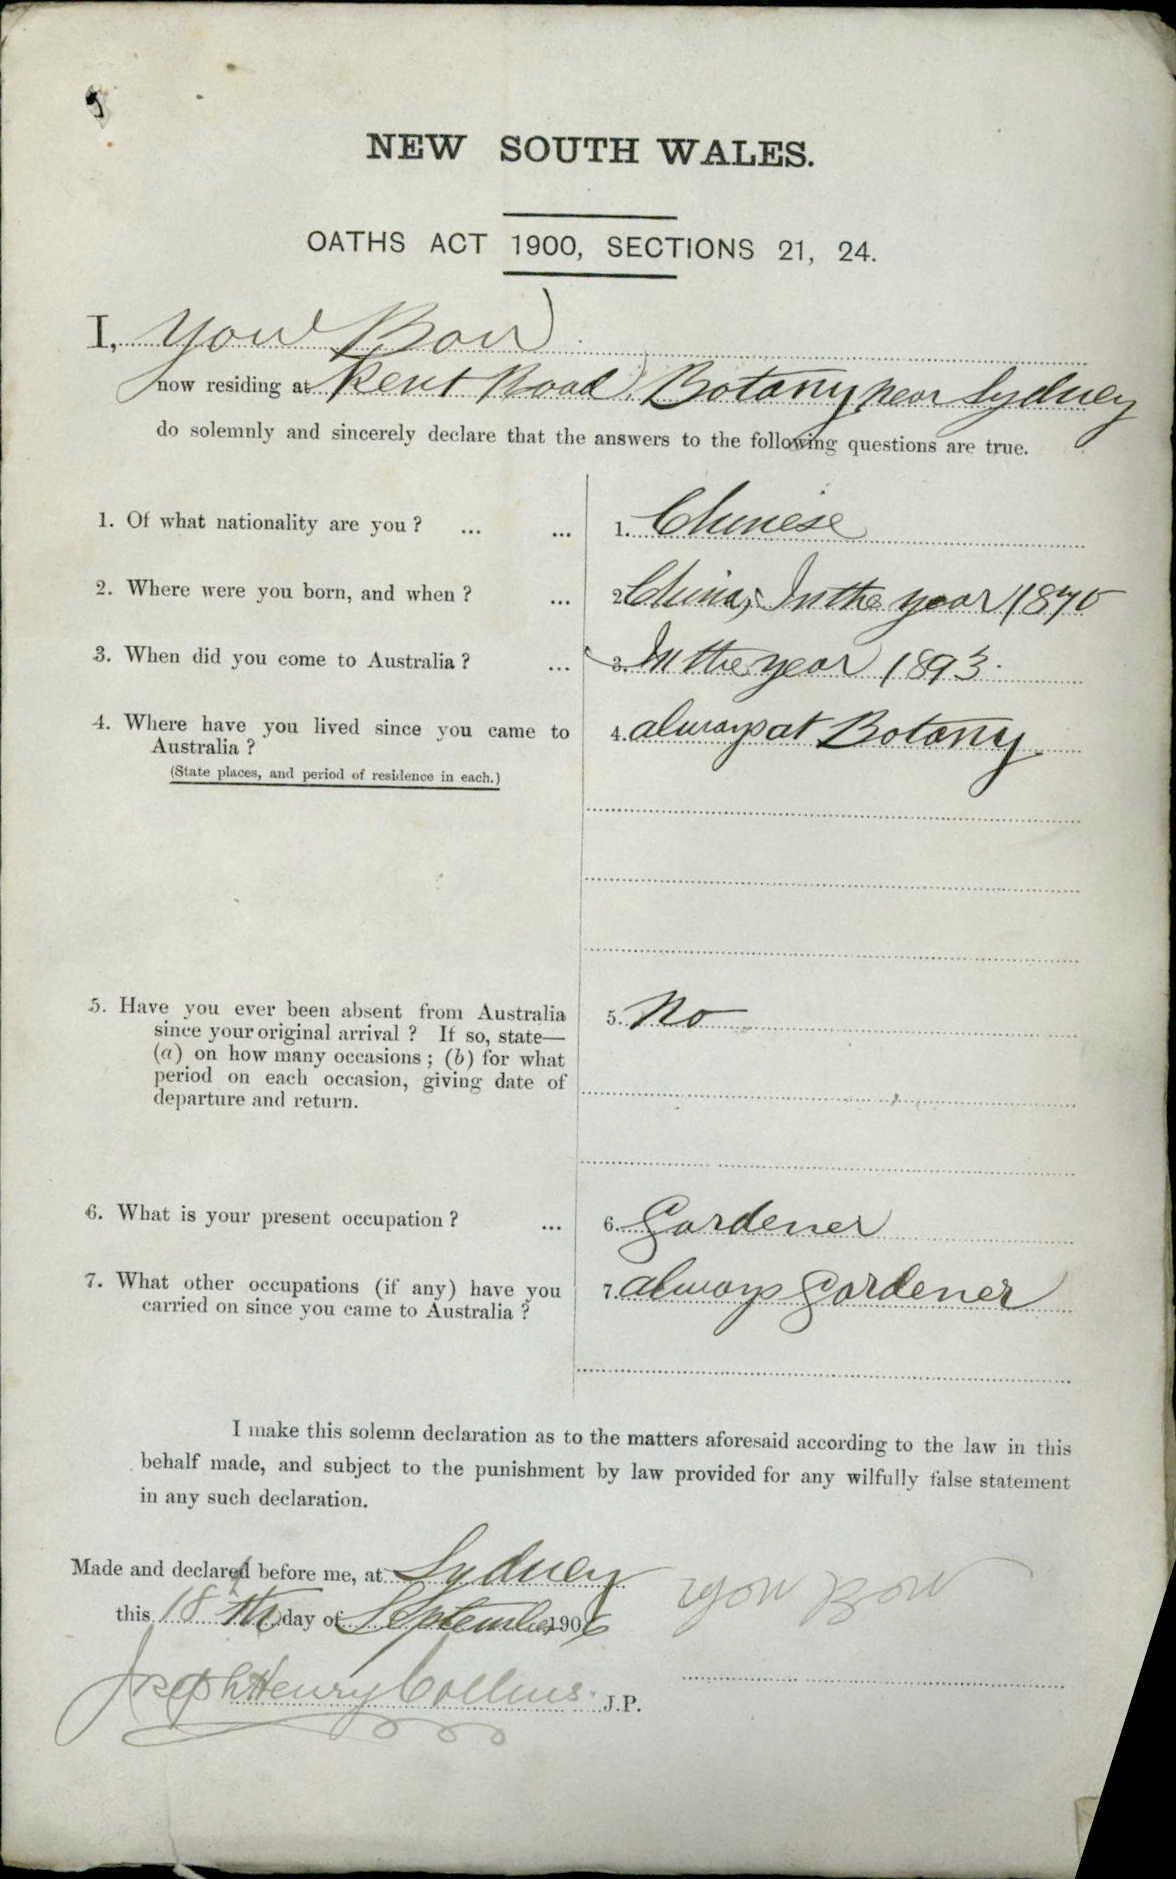 NEW SOUTH WALES.
OATHS ACT 1900, SECTIONS 21, 24.
I, Yow Bow
now residing at Kent Road, Botany near Sydney
do solemnly and sincerely declare that the answers to the following questions are true.
1. Of what nationality are you? ... ... 1. Chinese
2. Where were you born, and when? ... 2. China, In the year 1870
3. When did you come to Australia? ... 3. In the year 1893.
4. Where have you lived since you came to 4. always at Botany
Australia?
(State places, and period of residence in each.)
5. Have you ever been absent from Australia 5. No
since your original arrival? If so, state—
(a) on how many occasions; (b) for what
period on each occasion, giving date of
departure and return.
6. What is your present occupation? ... 6. Gardener
7. What other occupations (if any) have you 7. always Gardener
carried on since you came to Australia?
I make this solemn declaration as to the matters aforesaid according to the law in this
behalf made, and subject to the punishment by law provided for any wilfully false statement
in any such declaration.
Made and declared before me, at Sydney
this 18th day of September 1906 Yow Bow
Joseph Henry Collins. J.P.